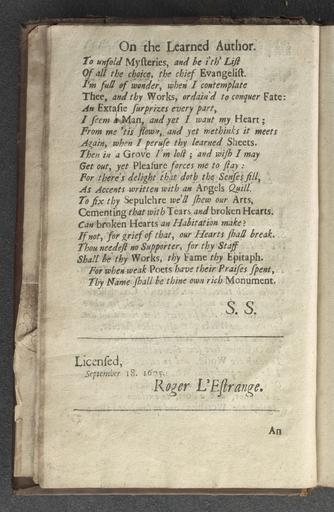 On the Learned Author.
To unfold Myſteries, and be i'th' Liſt
Of all the choice, the chief Evangeliſt.
I'm full of wonder, when I contemplate
Thee, and thy Works, ordain'd to conquer Fate:
An Extaſie ſurprizes every part,
I ſeem a Man, and yet I want my Heart;
From me 'tis flown, and yet methinks it meets
Again, when I peruſe thy learned Sheets.
Then in a Grove I'm loſt; and wiſh I may
Get out, yet Pleaſure forces me to ſtay:
For there's delight that doth the Senſes fill,
As Accents written with an Angels Quill.
To fix thy Sepulchre we'll ſhew our Arts,
Cementing that with Tears and broken Hearts.
Can broken Hearts an Habitation make?
If not, for grief of that, our Hearts ſhall break.
Thou needeſt no Supporter, for thy Staff
Shall be thy Works, thy Fame thy Epitaph.
For when weak Poets have their Praiſes ſpent,
Thy Name ſhall be thine own rich Monument.
S. S.
Licenſed,
September 18.
Roger L'Eſtrange.
An